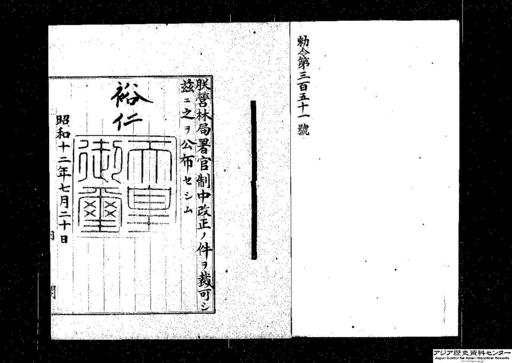 勅令第三百五十一號
朕營林局署官制中改正ノ件ヲ裁可シ
茲ニ之ヲ公布セシム
裕仁
天皇御璽
昭和十二年七月二十日
アジア歴史資料センター
Japan Center for Asian Historical Records